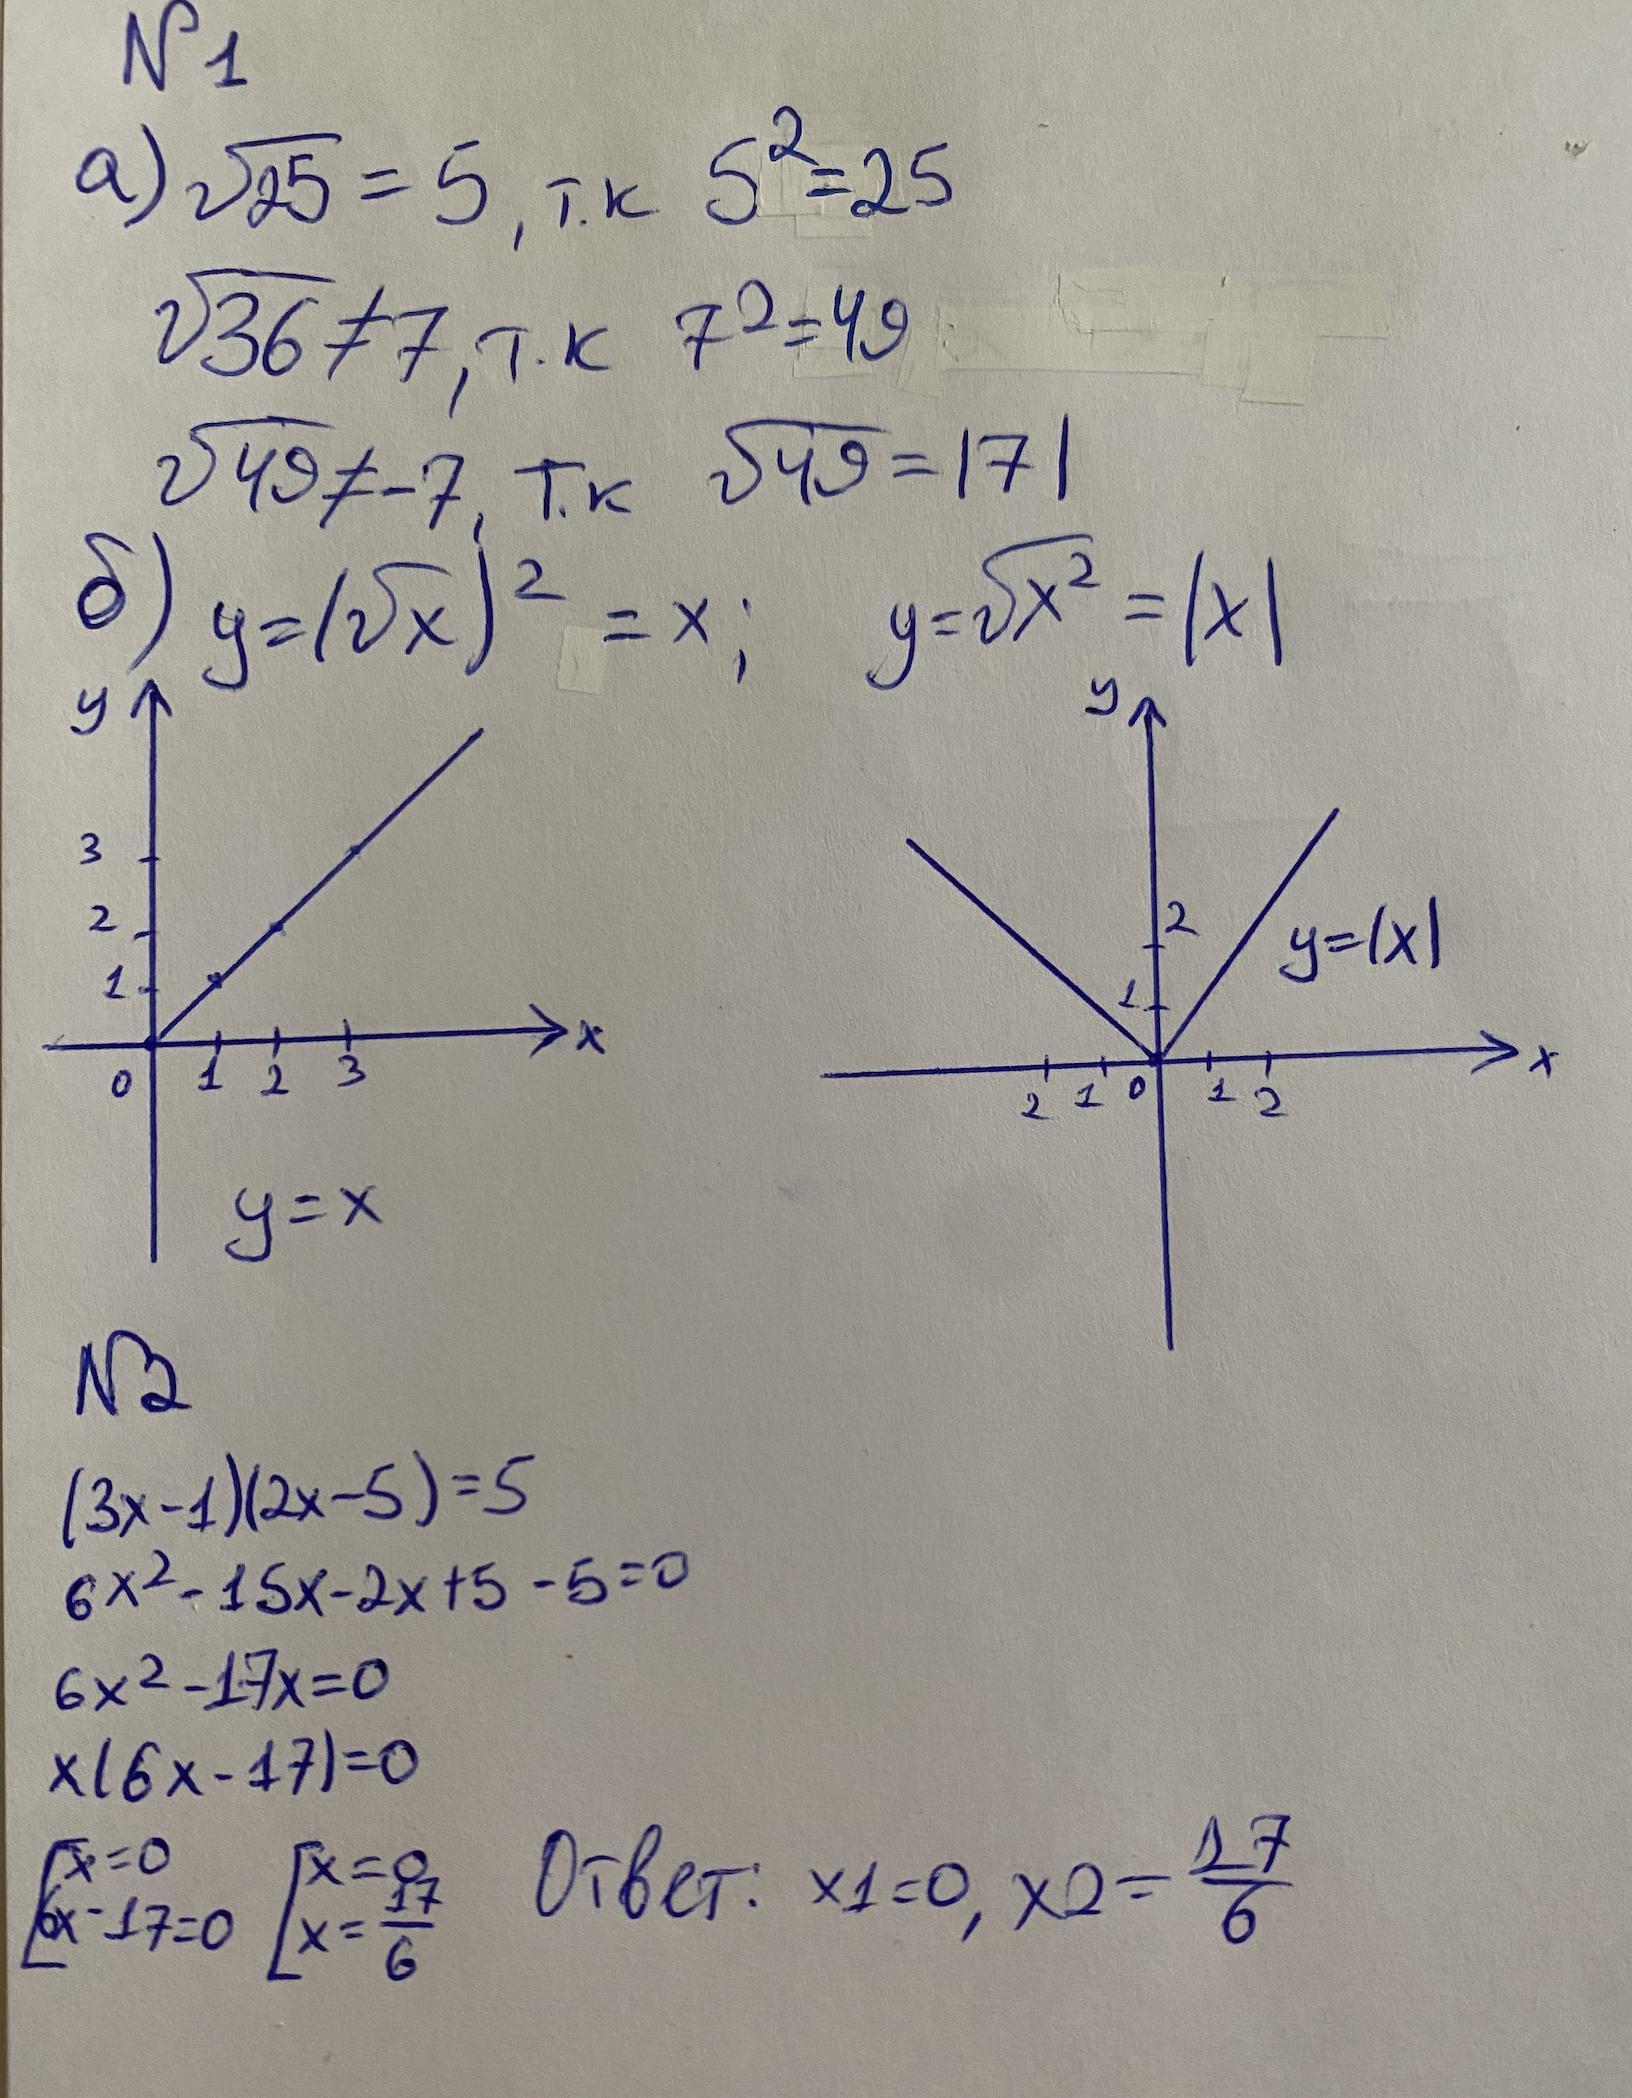 N1
а) √25 = 5, т.к 5²=25
√36≠7, т.к 7²=49
√49≠-7, т.к √49=|7|
б) y=(√x)² = x; y=√x² = |x|
y
3
2
1
0 1 2 3
x
y=x
y
2
1
2 1 0 1 2
x
y=|x|
N2
(3x-1)(2x-5)=5
6x²-15x-2x+5-5=0
6x²-17x=0
x(6x-17)=0
[x=0 [x=0
6x-17=0 x=17/6
Ответ: x1=0, x2=17/6